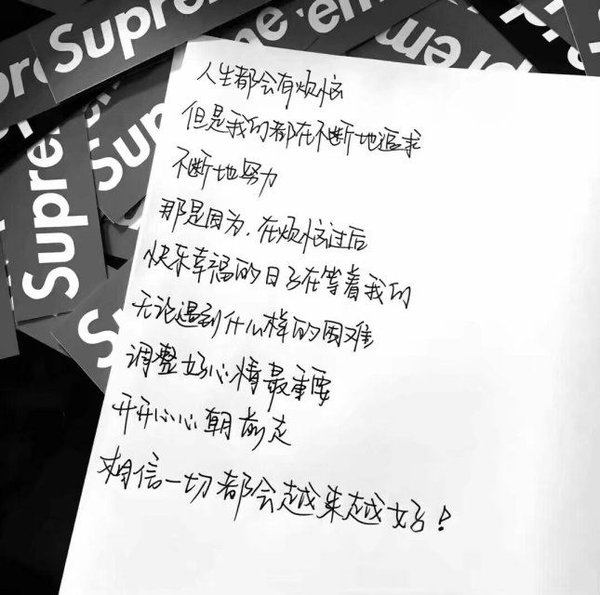 Supreme
Supreme
Supreme
人生都会有烦恼
但是我们都在不断地追求
不断地努力
那是因为，在烦恼过后
快乐幸福的日子在等着我们
无论遇到什么样的困难
调整好心情最重要
开开心心朝前走
相信一切都会越来越好！